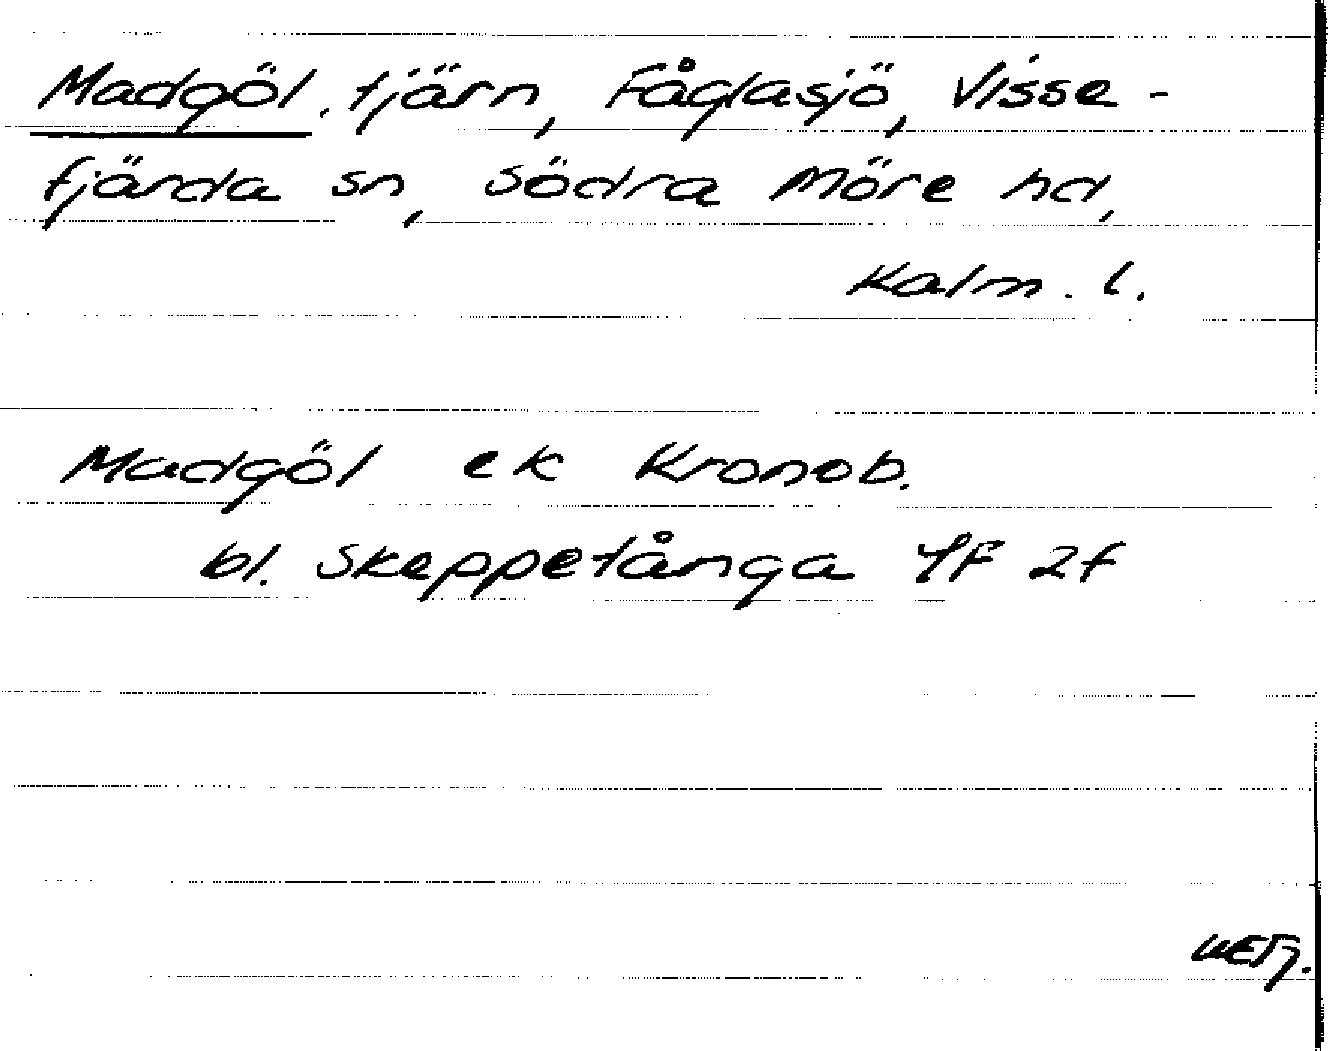 Madgöl, tjärn, Fåglasjö, Visse-
fjärda sn, Södra Möre hd,
Kalm. l.
Madgöl ek Kronob.
bl. Skeppetånga 4F 2f